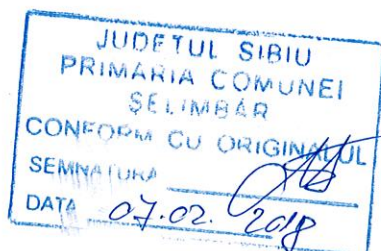 JUDEŢUL SIBIU
PRIMĂRIA COMUNEI
ŞELIMBĂR
CONFORM CU ORIGINALUL
SEMNATURA
DATA 07.02. 2018